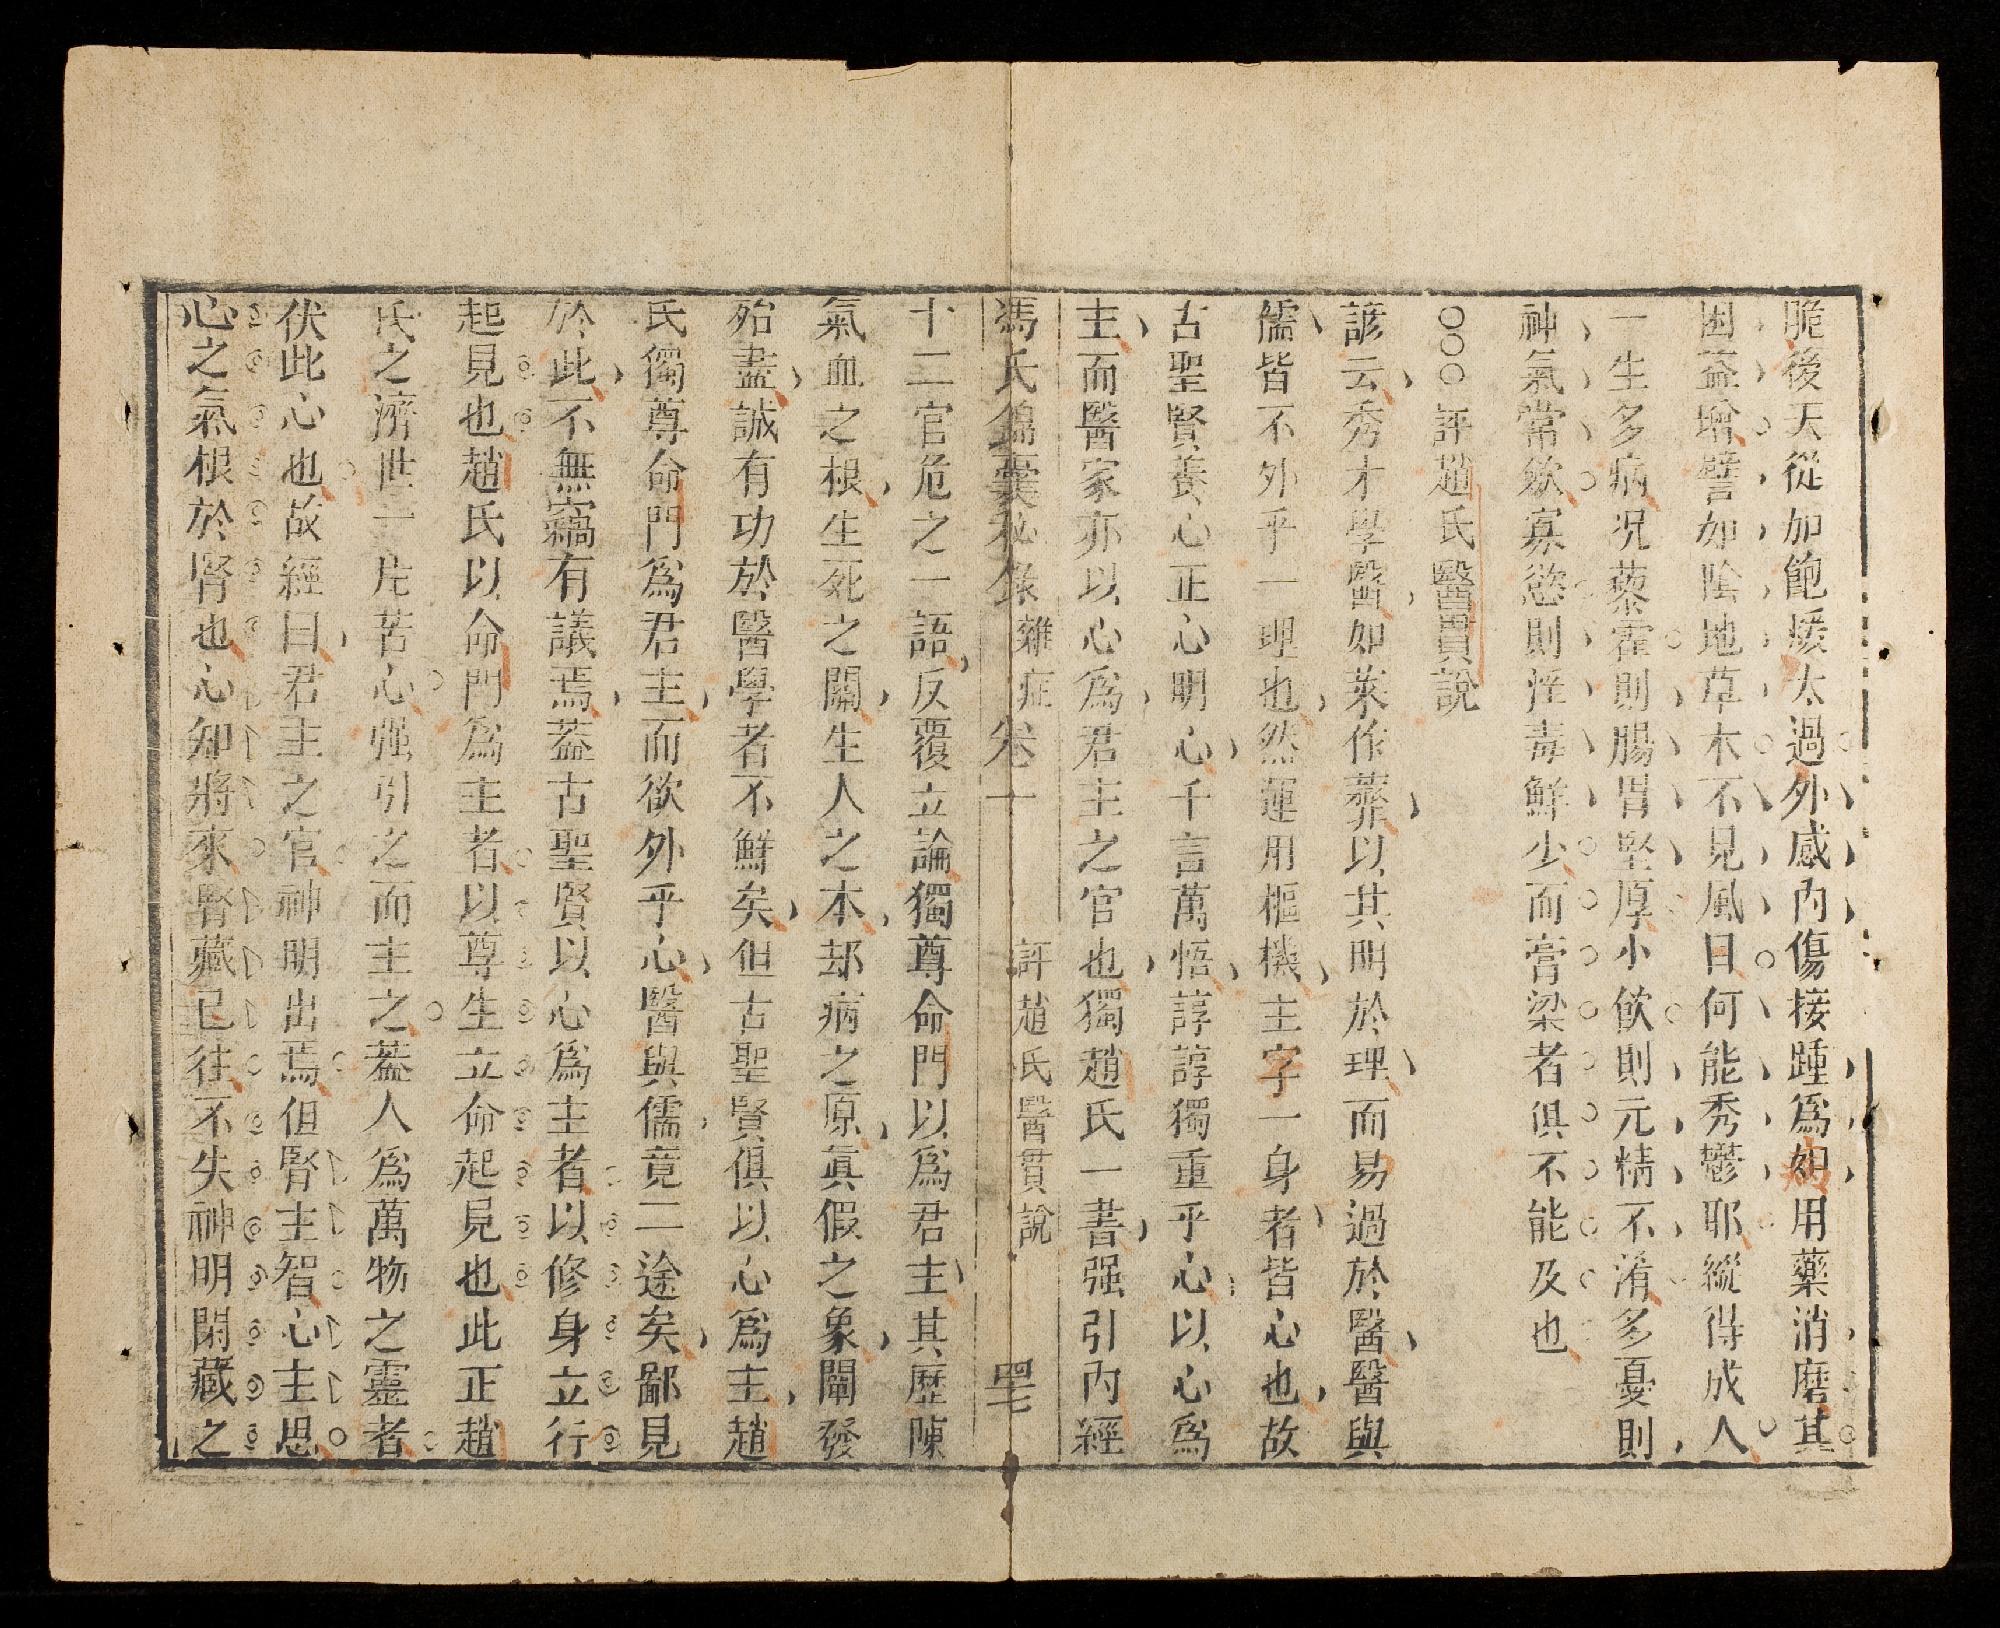 脆後天從加飽煖太過外感內傷接踵爲㓜用藥消磨其
困益增譬如陰地草木不見風日何能秀鬱耶縱得成人
一生多病况藜藿則腸胃堅厚小飲則元精不淆多憂則
神氣常歛寡慾則淫毒鮮少而膏粱者俱不能及也
○○○評趙氏醫貫說
諺云秀才學醫如菜作虀以其明於理而易過於醫醫與
儒皆不外乎一理也然運用樞機主字一身者皆心也故
古聖賢養心正心明心千言萬悟諄諄獨重乎心以心爲
主而醫家亦以心爲君主之官也獨趙氏一書强引內經
馮氏錦囊秘錄 雜症 卷十 評趙氏醫貫說 四七
十二官危之一語反覆立論獨尊命門以爲君主其歷陳
氣血之根生死之關生人之本却病之原眞假之象闡發
殆盡誠有功於醫學者不鮮矣但古聖賢俱以心爲主趙
氏獨尊命門爲君主而欲外乎心醫與儒竟二途矣鄙見
於此不無竊有議焉葢古聖賢以心爲主者以修身立行
起見也趙氏以命門爲主者以尊生立命起見也此正趙
氏之濟世一片苦心强引之而主之葢人爲萬物之靈者
伏此心也故經曰君主之官神明出焉但腎主智心主思
心之氣根於腎也心知將來腎藏已往不失神明閉藏之